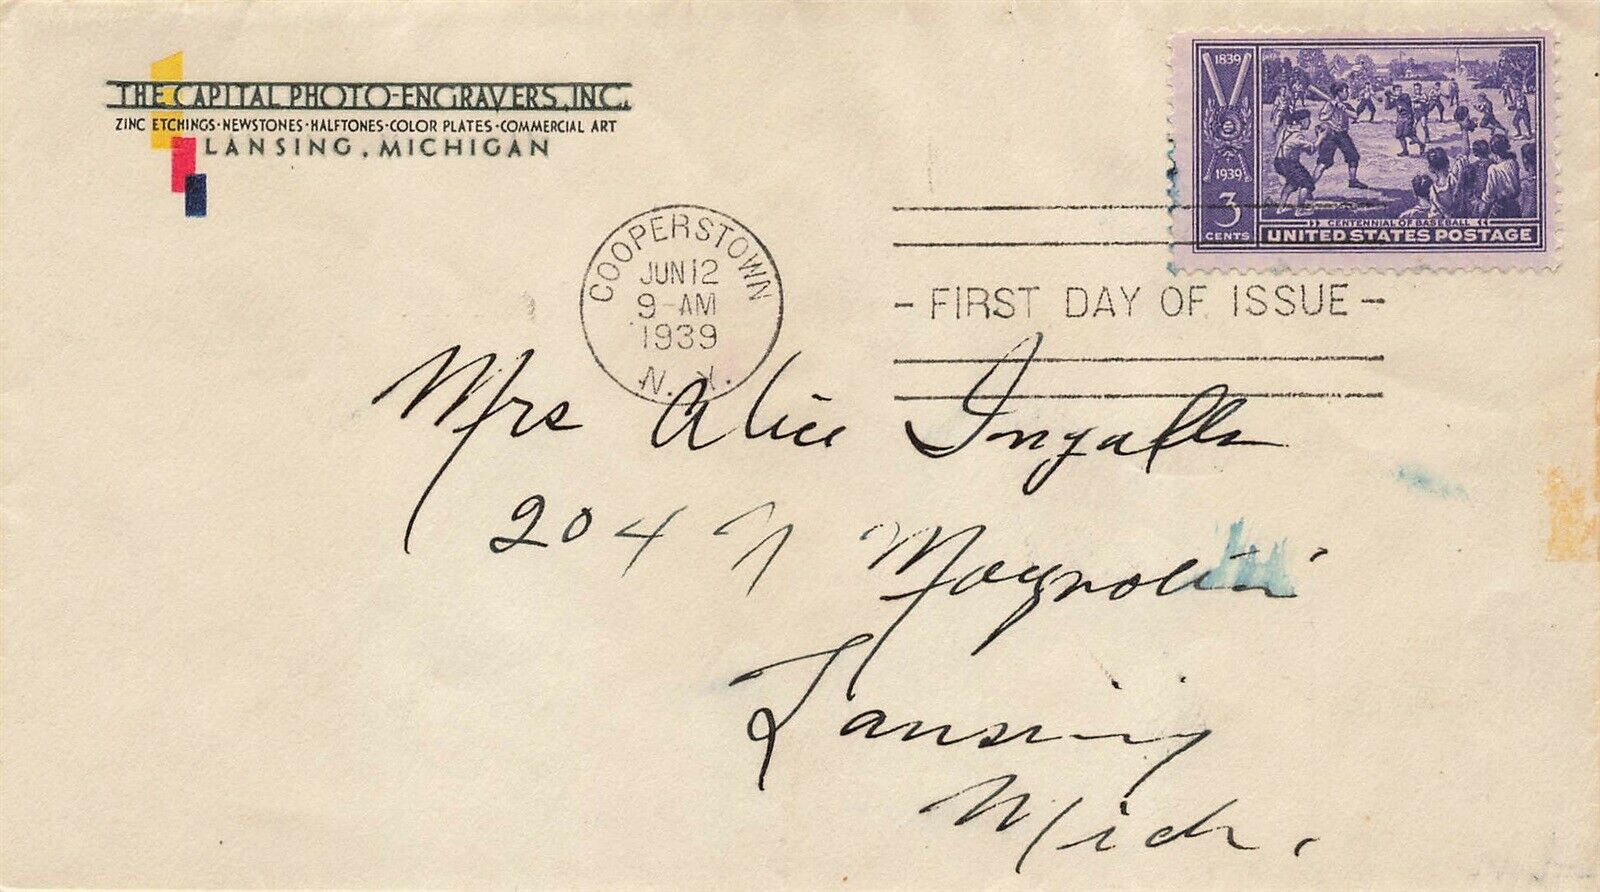 THE CAPITAL PHOTO-ENGRAVERS, INC.
ZINC ETCHINGS·NEWSTONES·HALFTONES·COLOR PLATES·COMMERCIAL ART
LANSING, MICHIGAN
1839
1939
3
CENTS
CENTENNIAL OF BASEBALL
UNITED STATES POSTAGE
COOPERSTOWN
JUN 12
9-AM
1939
N.Y.
- FIRST DAY OF ISSUE -
Mrs Alice Ingalls
204 N Magnolia
Lansing
Mich.